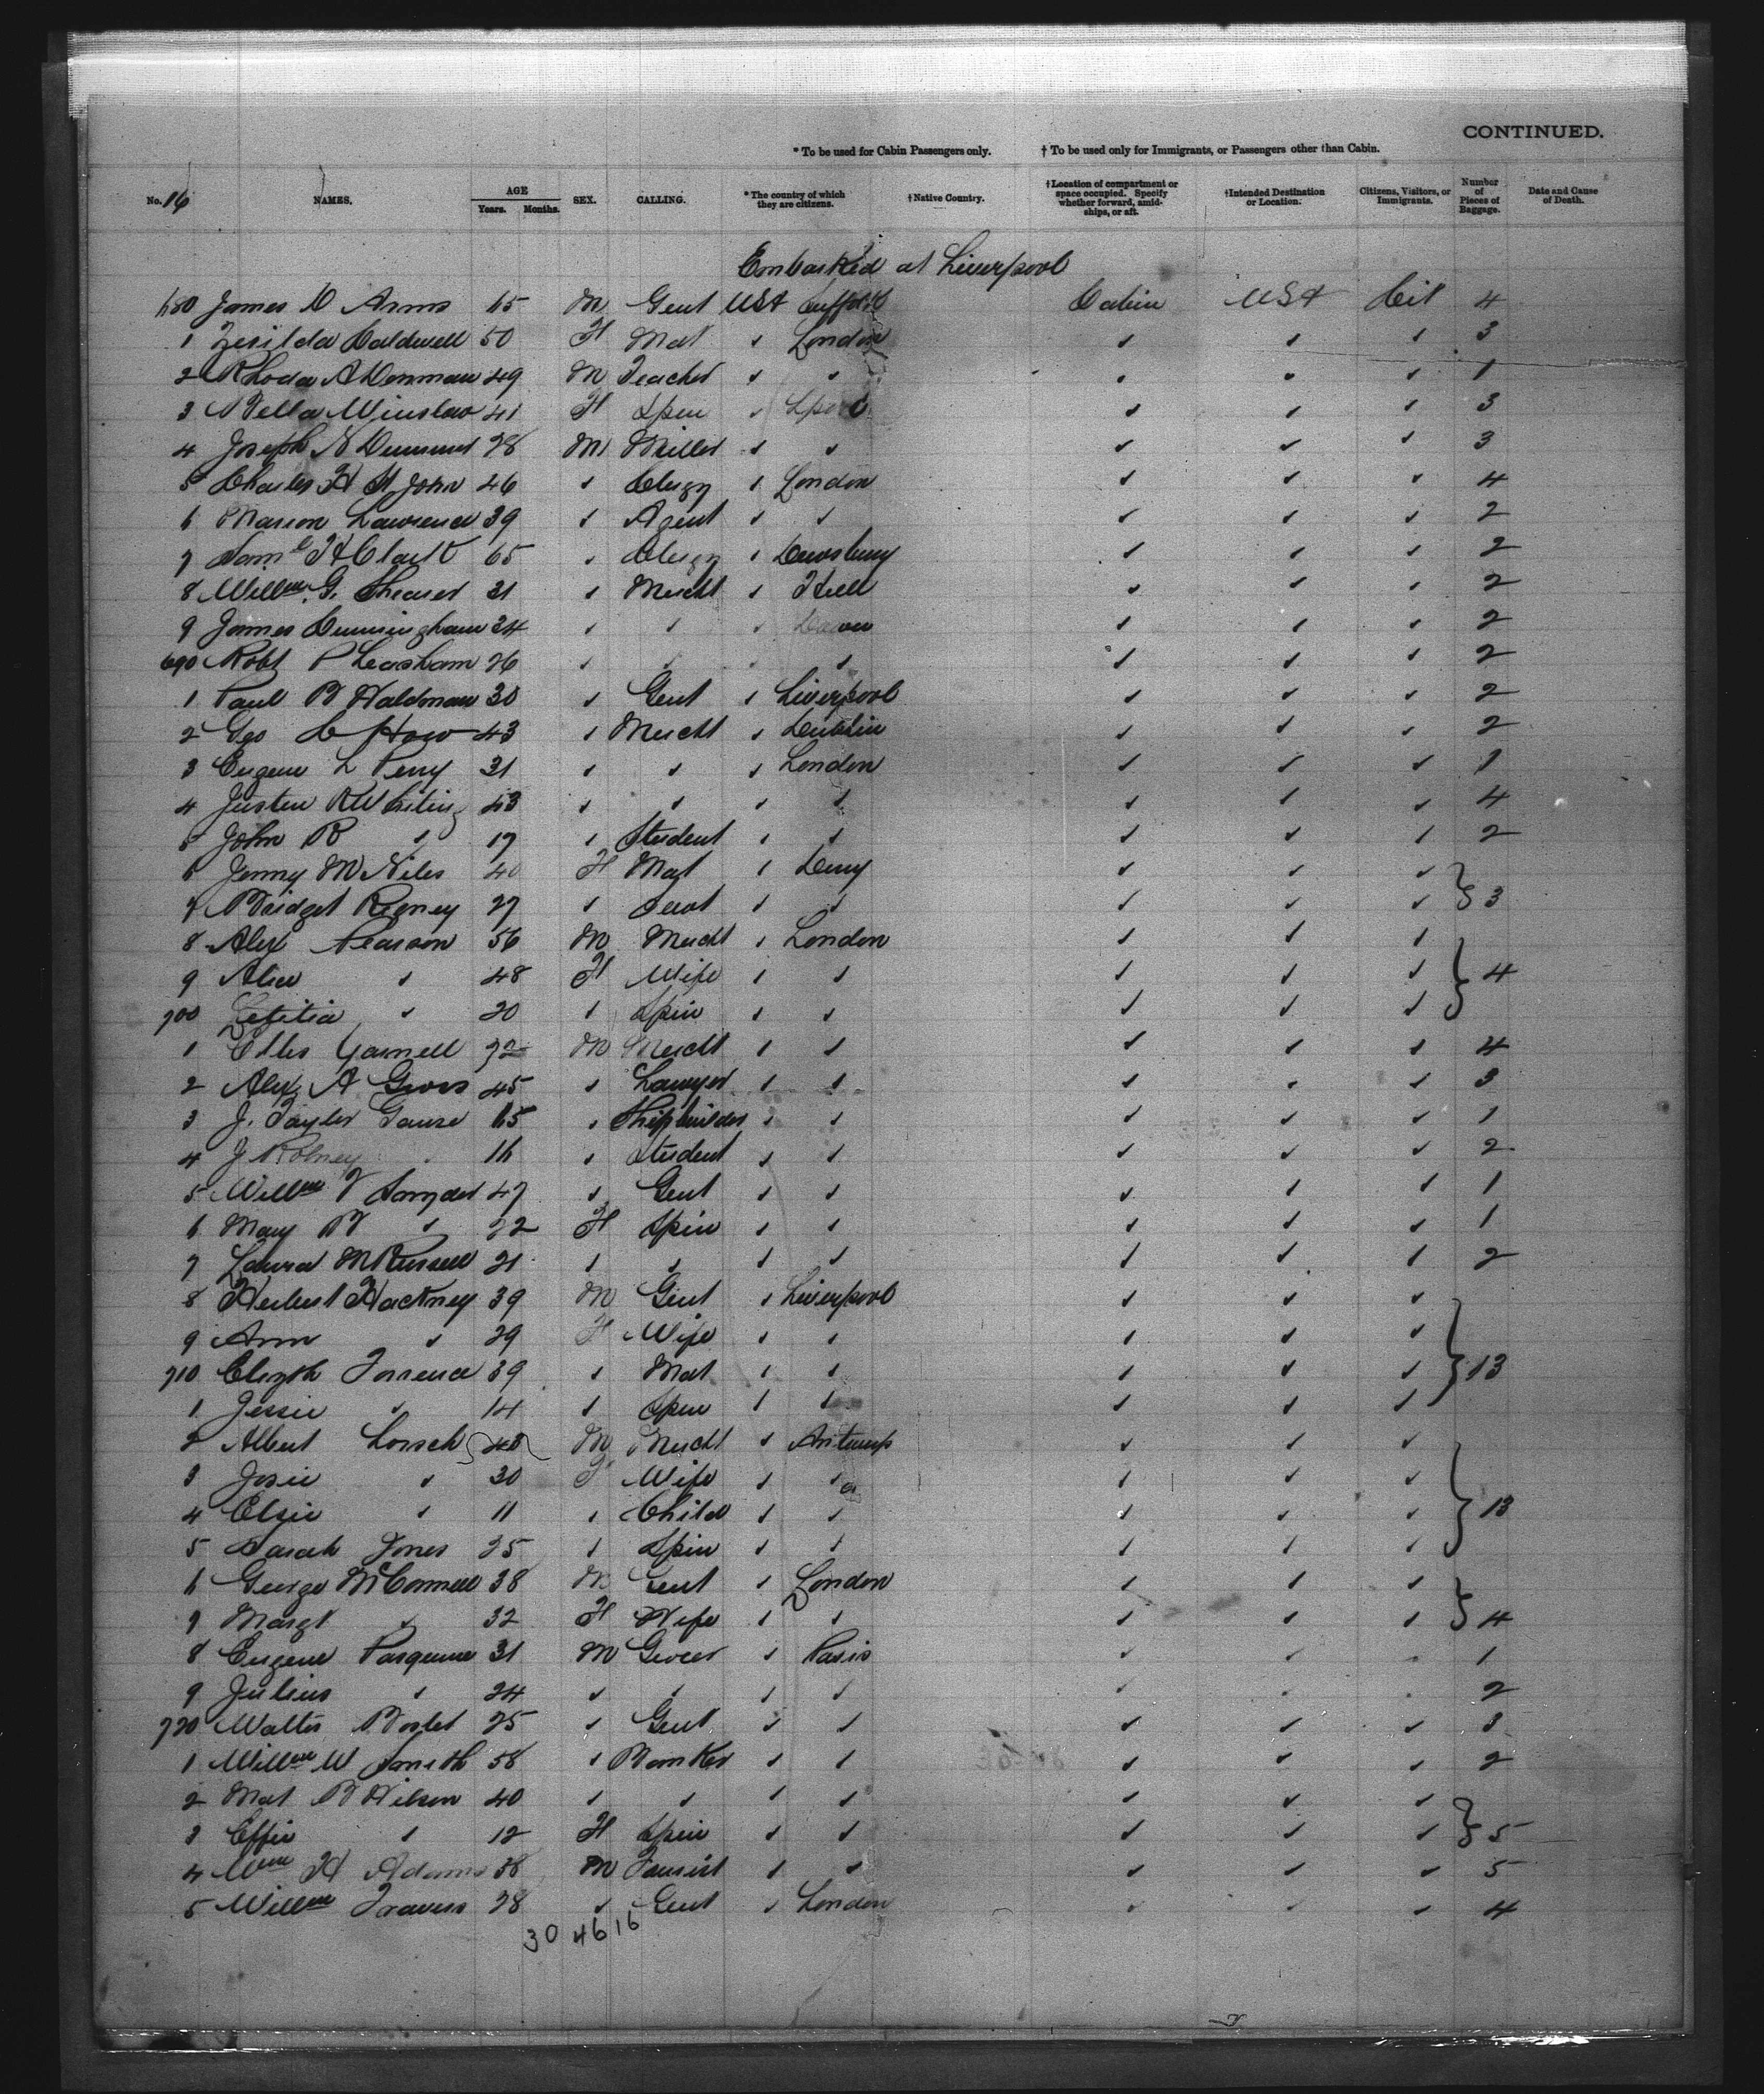 CONTINUED.
* To be used for Cabin Passengers only. † To be used only for Immigrants, or Passengers other than Cabin.
No. 16 NAMES. AGE Years. Months. SEX. CALLING. * The country of which they are citizens. † Native Country. † Location of compartment or space occupied. Specify whether forward, amidships, or aft. † Intended Destination or Location. Citizens, Visitors, or Immigrants. Number of Pieces of Baggage. Date and Cause of Death.
Embarked at Liverpool
680 James D Arms 65 M Gent USA Cabin USA Cit 4
1 Zerilda Caldwell 50 F Mat ✓ London ✓ ✓ ✓ 3
2 Rhoda A 49 M Teacher ✓ ✓ ✓ ✓ ✓ 1
3 Bella Winslow 41 F Spin ✓ ✓ ✓ ✓ 3
4 Joseph 28 M Miller ✓ ✓ ✓ ✓ ✓ 3
5 Charles H St John 46 ✓ Clergy ✓ London ✓ ✓ ✓ 4
6 Marion Lawrence 39 ✓ Agent ✓ ✓ ✓ ✓ ✓ 2
7 Saml H Clark 65 ✓ Clergy ✓ Dewsbury ✓ ✓ ✓ 2
8 Willm G. Shearer 31 ✓ Mercht ✓ Hull ✓ ✓ ✓ 2
9 James Cunningham 34 ✓ ✓ ✓ ✓ ✓ ✓ 2
690 Robt P 26 ✓ ✓ ✓ ✓ ✓ ✓ ✓ 2
1 Paul B Haldman 30 ✓ Gent ✓ Liverpool ✓ ✓ ✓ 2
2 Geo C How 43 ✓ Mercht ✓ Dublin ✓ ✓ ✓ 2
3 Eugene L Perry 31 ✓ ✓ ✓ London ✓ ✓ ✓ 1
4 Justin R Whiting 43 ✓ ✓ ✓ ✓ ✓ ✓ ✓ 4
5 John R ✓ 17 ✓ Student ✓ ✓ ✓ ✓ ✓ 2
6 Jenny M Niles 40 F Mat ✓ Derry ✓ ✓ ✓
7 Bridget 27 ✓ Servt ✓ ✓ ✓ ✓ ✓ } 3
8 Alex Pearson 56 M Mercht ✓ London ✓ ✓ ✓
9 Alice ✓ 48 F Wife ✓ ✓ ✓ ✓ ✓ } 4
700 Letitia ✓ 20 ✓ Spin ✓ ✓ ✓ ✓ ✓
1 Yarnell M Mercht ✓ ✓ ✓ ✓ ✓ 4
2 Alex A 45 ✓ Lawyer ✓ ✓ ✓ ✓ ✓ 3
3 J. Taylor Gause 65 ✓ Shipbuilder ✓ ✓ ✓ ✓ ✓ 1
4 J Rodney ✓ 16 ✓ Student ✓ ✓ ✓ ✓ ✓ 2
5 Willm V Snyder 47 ✓ Gent ✓ ✓ ✓ ✓ ✓ 1
6 Mary B ✓ 22 F Spin ✓ ✓ ✓ ✓ ✓ 1
7 Laura M Russell 21 ✓ ✓ ✓ ✓ ✓ ✓ ✓ 2
8 Herbert Hackney 39 M Gent ✓ Liverpool ✓ ✓ ✓
9 Ann ✓ 29 F Wife ✓ ✓ ✓ ✓ ✓
710 Elizth Torrence 39 ✓ Mat ✓ ✓ ✓ ✓ ✓ } 13
1 Jessie ✓ 14 ✓ Spin ✓ ✓ ✓ ✓ ✓
2 Albert Lorsch 48 M Mercht ✓ Antwerp ✓ ✓ ✓
3 Josie ✓ 30 F Wife ✓ ✓ ✓ ✓ ✓
4 Elsie ✓ 11 ✓ Child ✓ ✓ ✓ ✓ ✓ } 13
5 Sarah Jones 25 ✓ Spin ✓ ✓ ✓ ✓ ✓
6 George McConnell 38 M Gent ✓ London ✓ ✓ ✓
7 Margt ✓ 32 F Wife ✓ ✓ ✓ ✓ ✓ } 4
8 Eugene 31 M Grocer ✓ Paris ✓ ✓ ✓ 1
9 Julius ✓ 24 ✓ ✓ ✓ ✓ ✓ ✓ ✓ 2
720 Walter 25 ✓ Gent ✓ ✓ ✓ ✓ ✓ 3
1 Willm W Smith 58 ✓ Banker ✓ ✓ ✓ ✓ ✓ 2
2 Mat B Wilson 40 ✓ ✓ ✓ ✓ ✓ ✓ ✓
3 Effie ✓ 12 F Spin ✓ ✓ ✓ ✓ ✓ } 5
4 Wm H Adams 38 M Tourist ✓ ✓ ✓ ✓ ✓ 5
5 Willm Travers 28 ✓ Gent ✓ London ✓ ✓ ✓ 4
30 46 16